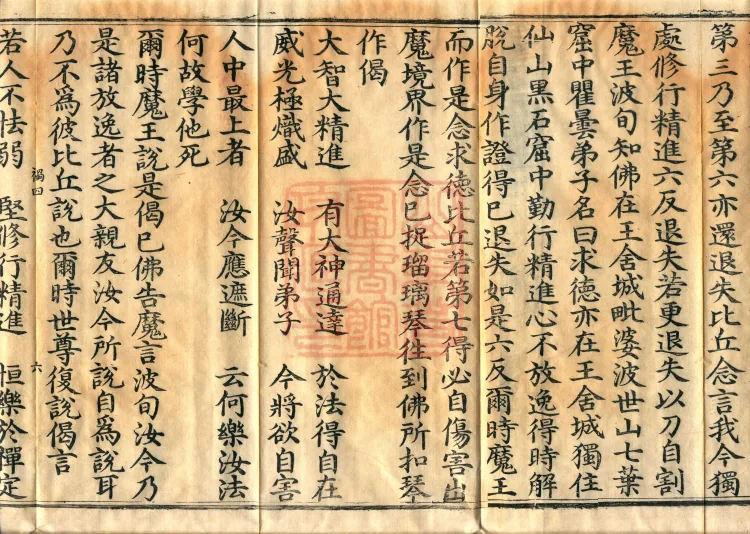 第三乃至第六亦還退失比丘念言我今獨
處修行精進六反退失若更退失以刀自割
魔王波旬知佛在王舍城毗婆波世山七葉
窟中瞿曇弟子名曰求德亦在王舍城獨住
仙山黑石窟中勤行精進心不放逸得時解
脫自身作證得已退失如是六反爾時魔王
而作是念求德比丘若第七得必自傷害出
魔境界作是念已捉瑠璃琴往到佛所扣琴
作偈
大智大精進 有大神通達 於法得自在
威光極熾盛 汝聲聞弟子 今將欲自害
人中最上者 汝今應遮斷 云何樂汝法
何故學他死
爾時魔王說是偈已佛告魔言波旬汝今乃
是諸放逸者之大親友汝今所說自為說耳
乃不為彼比丘說也爾時世尊復說偈言
若人不怯弱 堅修行精進 恒樂於禪定
六